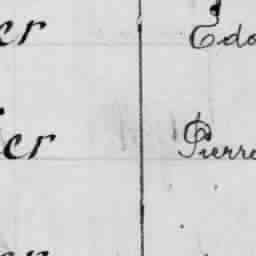 er Edo
er Pierre